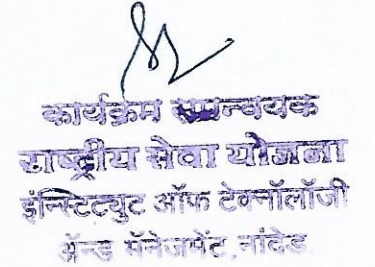 कार्यक्रम समन्वयक
राष्ट्रीय सेवा योजना
इंन्स्टिट्युट ऑफ टेक्नॉलॉजी
ॲन्ड मॅनेजमेंट, नांदेड